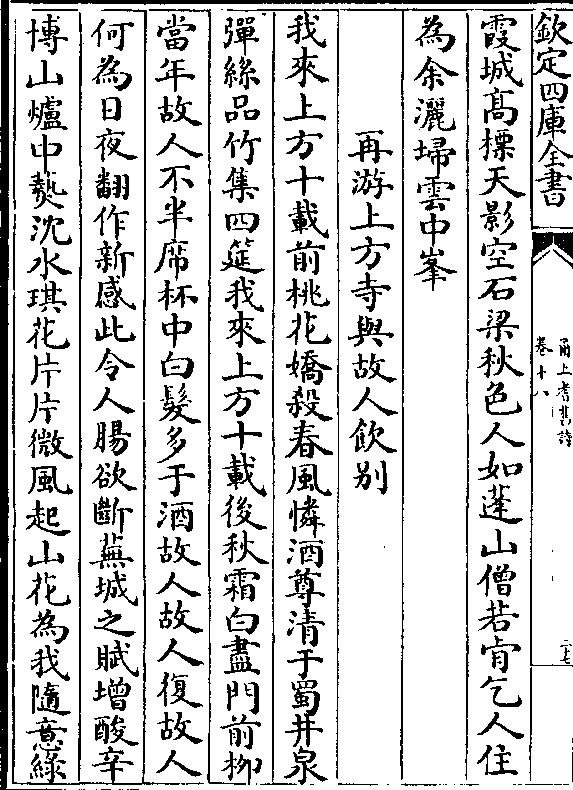 欽定四庫全書
甬上耆舊詩
卷十八
二七
霞城髙標天影空石梁秋色人如蓬山僧若肯乞人住
為余灑埽雲中峯
再游上方寺與故人飲别
我來上方十載前桃花嬌殺春風憐酒尊清于蜀井泉
彈絲品竹集四筵我來上方十載後秋霜白盡門前柳
當年故人不半席杯中白髮多于酒故人故人復故人
何為日夜翻作新感此令人腸欲斷蕪城之賦增酸辛
博山爐中爇沈水琪花片片微風起山花為我隨意緑